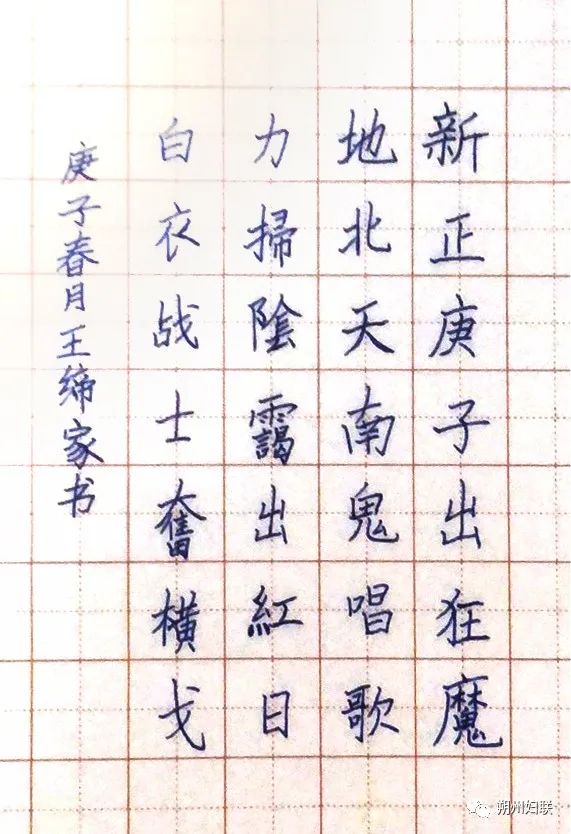 新正庚子出狂魔
地北天南鬼唱歌
力掃陰靄出紅日
白衣战士奮横戈
庚子春月王缔家书
朔州妇联